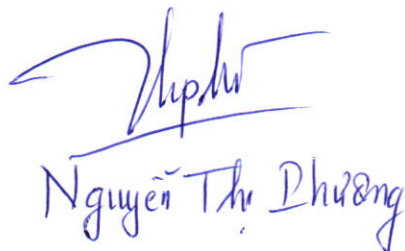 Nguyễn Thị Phương